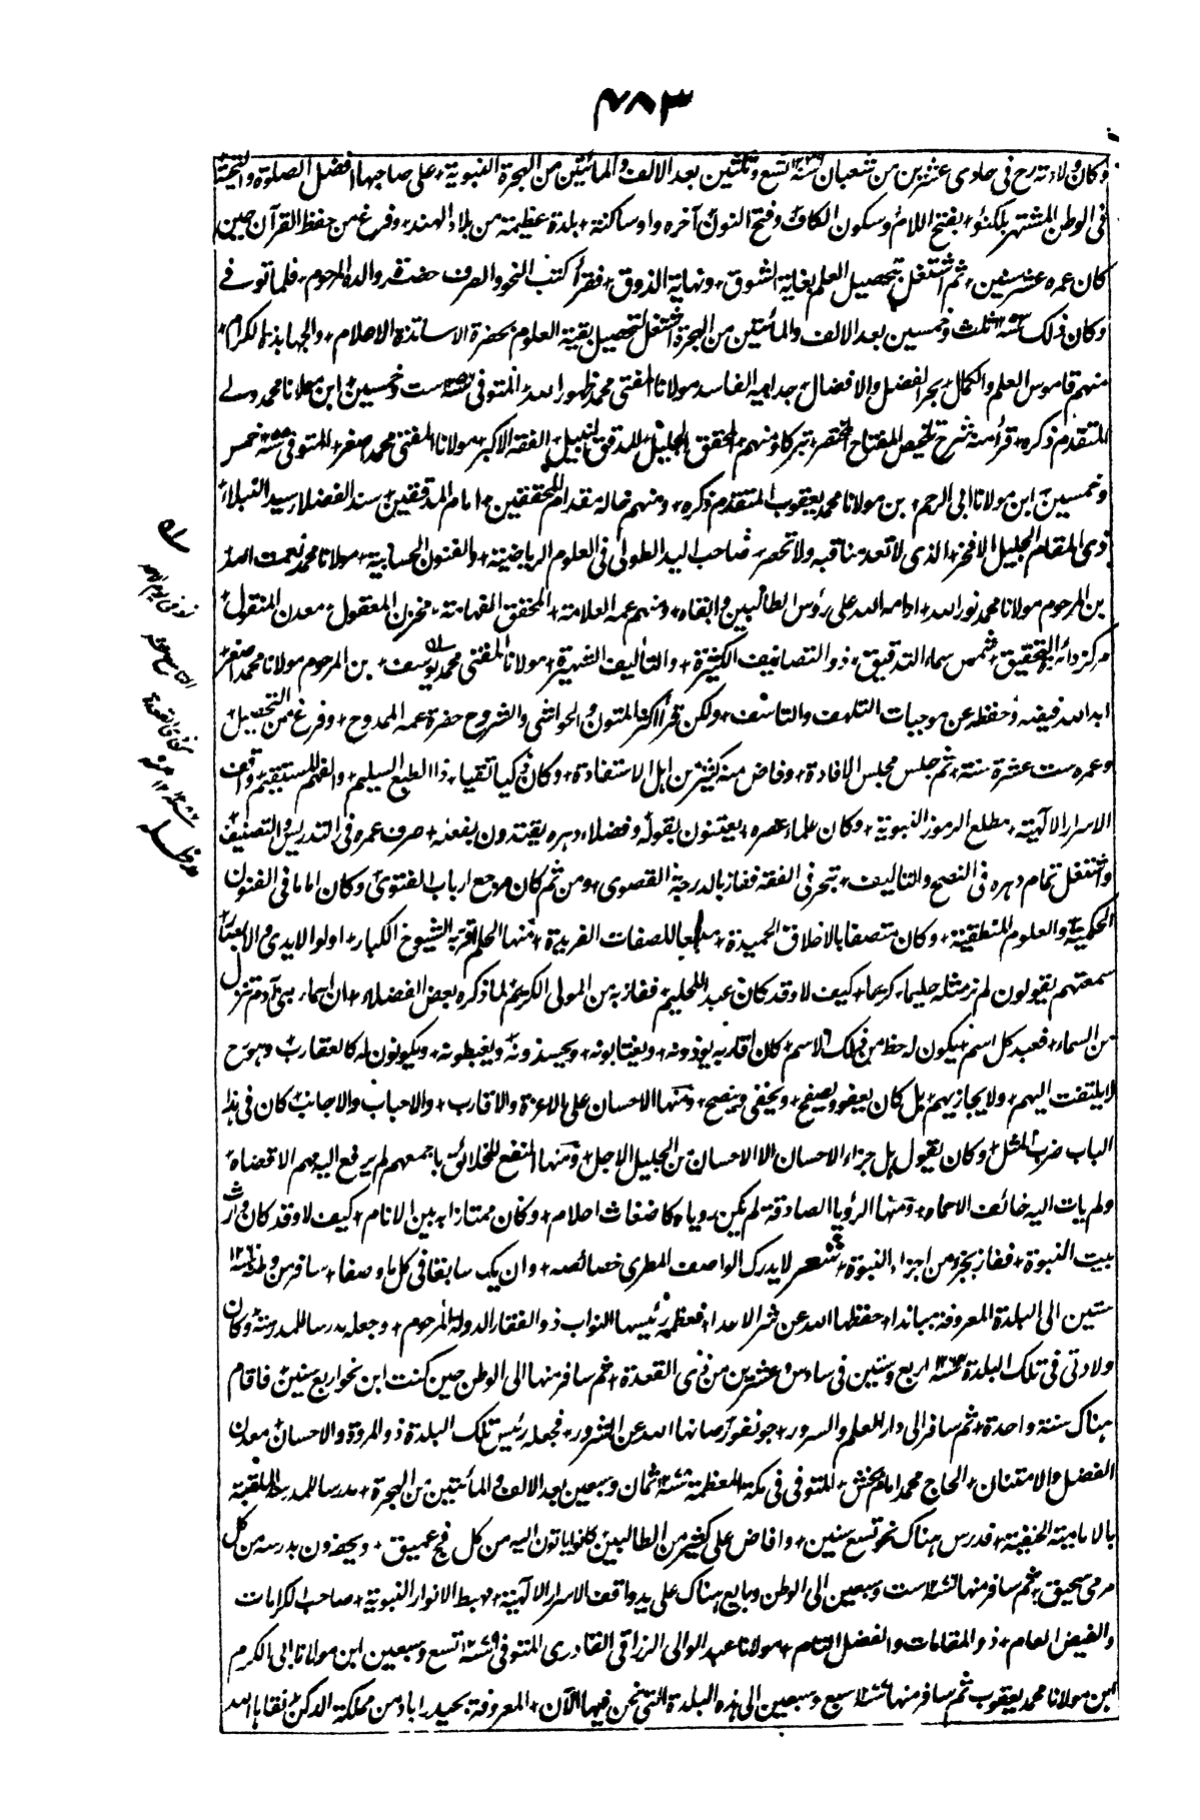 ٤٨٣
وكان ولادته رح فى حادى عشرين من شعبان سنة ١٢٣٩ تسع وثلثين بعد الالف والمائتين من الهجرة النبوية + على صاحبها افضل الصلوة والتحية
فى الوطن المشتهر بلكنؤ + بفتح اللام وسكون الكاف وفتح النون آخره واو ساكنة + بلدة عظيمة من بلاد الهند + وفرغ من حفظ القرآن حين
كان عمره عشر سنين + ثم اشتغل بتحصيل العلم بغاية الشوق + ونهاية الذوق + فقرأ كتب النحو والصرف حضرة والده المرحوم + فلما توفى
وكان ذلك سنة ١٢٥٣ ثلث وخمسين بعد الالف والمائتين من الهجرة اشتغل لتحصيل بقية العلوم بحضرة الاساتذة الاعلام + والجهابذة الكرام +
منهم قاموس العلم والكمال + بحر الفضل والافضال + جد ابيه الفاسد مولانا المفتى محمد ظهور الله + المتوفى سنة ١٢٥٦ ست وخمسين + ابن مولانا محمد ولى
المتقدم ذكره + قرأ منه شرح تلخيص المفتاح المختصر + تبركا ومنهم + المحقق الجليل + المدقق النبيل + الفقه الاكبر + مولانا المفتى محمد اصغر + المتوفى سنة ١٢٥٥ خمس
وخمسين ابن مولانا ابى الرحم + بن مولانا محمد يعقوب المتقدم ذكره + ومنهم خاله مقدام المحققين + امام المدققين + سند الفضلا سيد النبلاء
ذى المقام الجليل الافخر + الذى لا تعد مناقبه ولا تحصر + صاحب اليد الطولى فى العلوم الرياضية + والفنون الحسابية + مولانا محمد نعمت الله
بن المرحوم مولانا محمد نور الله + ادامه الله على رؤس الطالبين وابقاه + ومنهم عمه العلامة + المحقق الفهامة + مخزن المعقول + معدن المنقول +
مركز دائرة التحقيق + شمس سماء التدقيق + ذو التصانيف الكثيرة + والتأليف الشهيرة + مولانا المفتى محمد يوسف + بن المرحوم مولانا محمد اصغر +
ابد الله فيضه وحفظه عن موجبات التلهف والتاسف + ولكن قرأ اكثر المتون والحواشى والشروح حضرة عمه الممدوح + وفرغ من التحصيل +
وعمره ست عشرة سنة + ثم جلس مجلس الافادة + وفاض منه كثير من اهل الاستفادة + وكان ذكيا تقيا + ذا الطبع السليم + والفهم المستقيم + واقف
الاسرار الآلهية + مطلع الرموز النبوية + وكان علماء عصره + يعتنون بقوله وفضلاء دهره يقتدون بفعله + صرف عمره فى التدريس والتصنيف +
واشتغل تمام دهره فى النصح والتاليف + تبحر فى الفقه ففاز بالدرجة القصوى + ومن ثم كان مرجع ارباب الفتوى + وكان اماما فى الفنون
الحكمية + والعلوم المنطقية + وكان متصفا بالاخلاق الحميدة + جامعا للصفات الفريدة + منها الحلم اقر به الشيوخ الكبار + اولو الايدى والابصار +
سمعتهم يقولون لم نر مثله حليما + كريما + كيف لا وقد كان عبد الحليم + ففاز به من المولى الكريم + لما ذكره بعض الفضلاء + ان اسماء بنى آدم تنزل
من السماء + فعبد كل اسم + يكون له حظ من ذلك الاسم + كان اقاربه يوذونه + ويغتابونه + ويحسدونه + ويغبطونه + ويكونون له كالعقارب + وهو رح
لا يلتفت اليهم + ولا يجازيهم + بل كان يعفو ويصفح + ويخفى وينصح + ومنها الاحسان على الاعزة والاقارب + والاحباب والاجانب + كان فى هذا
الباب ضرب المثل + وكان يقول هل جزاء الاحسان الا الاحسان من الجليل الاجل + ومنها النفع للخلائق باجمعهم لم يرفع اليه مهم الا قضاه +
ولم يات اليه خائف الا حماه + ومنها الرؤيا الصادقة لم يكن روياه كاضغاث احلام + وكان ممتازا به بين الانام + كيف لا وقد كان وارث
بيت النبوة + ففاز بجزء من اجزاء النبوة + شعر لا يدرك الواصف المطرى خصائصه + وان يكن سابقا فى كل ما وصفا + سافر من وطنه سنة ١٢٦٠
ستين الى البلدة المعروفة بباندا + حفظها الله عن شر الاعداء + فعظمه رئيسها النواب ذو الفقار الدولة المرحوم + وجعله مدرسا للمدرسة + وكان
ولادتى فى تلك البلدة سنة ١٢٦٤ اربع وستين فى سادس وعشرين من ذى القعدة + ثم سافر منها الى الوطن حين كنت ابن نحو اربع سنين + فاقام
هناك سنة واحدة + ثم سافر الى دار العلم والسرور + جونفور + صانها الله عن الشرور + فجعله رئيس تلك البلدة ذو المروة والاحسان + معدن
الفضل والامتنان + الحاج محمد امام بخش + المتوفى فى مكة المعظمة سنة ١٢٧٨ ثمان وسبعين بعد الالف والمأتين من الهجرة + مدرسا للمدرسة الملقبة
بالامامية الحنفية + فدرس هناك نحو تسع سنين + وافاض على كثير من الطالبين + كانوا ياتون اليه من كل فج عميق + ويحضرون بدرسه من كل
مرمى سحيق + ثم سافر منها سنة ١٢٧٦ ست وسبعين الى الوطن وبايع هناك على يد واقف الاسرار الآلهية + مهبط الانوار النبوية + صاحب الكرامات
والفيض العام + ذو المقامات والفضل التام + مولانا عبد الوالى الرزاقى القادرى المتوفى سنة ١٢٧٩ تسع وسبعين ابن مولانا ابى الكرم
ابن مولانا محمد يعقوب ثم سافر منها سنة ١٢٧٧ سبع وسبعين الى هذه البلدة التى نحن فيها الآن + المعروفة بحيدراباد من مملكة الدكن + نقاها الله